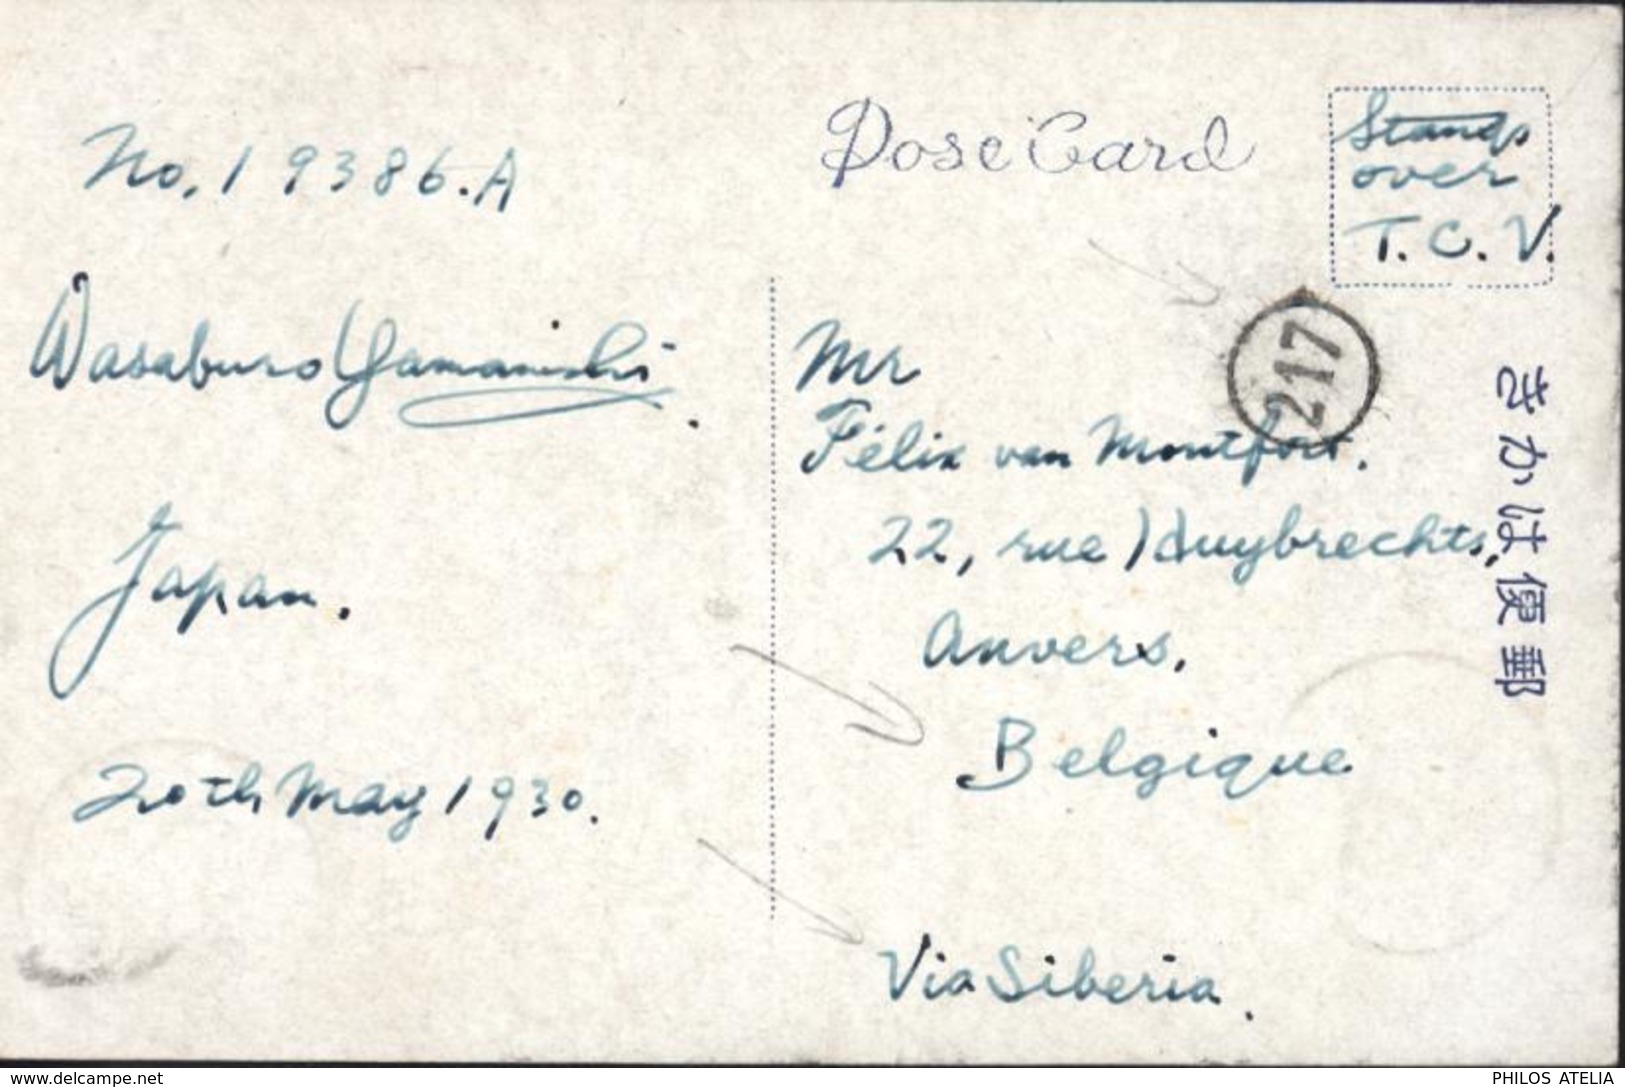 No. 19386.A
Wasaburo Yamanishi.
Japan.
20th May 1930.
Post Card
Stamps
over
T. C. V.
217
Mr
Félix van Montfort.
22, rue Huybrechts,
Anvers.
Belgique
Via Siberia.
郵便はかき
www.delcampe.net
PHILOS ATELIA